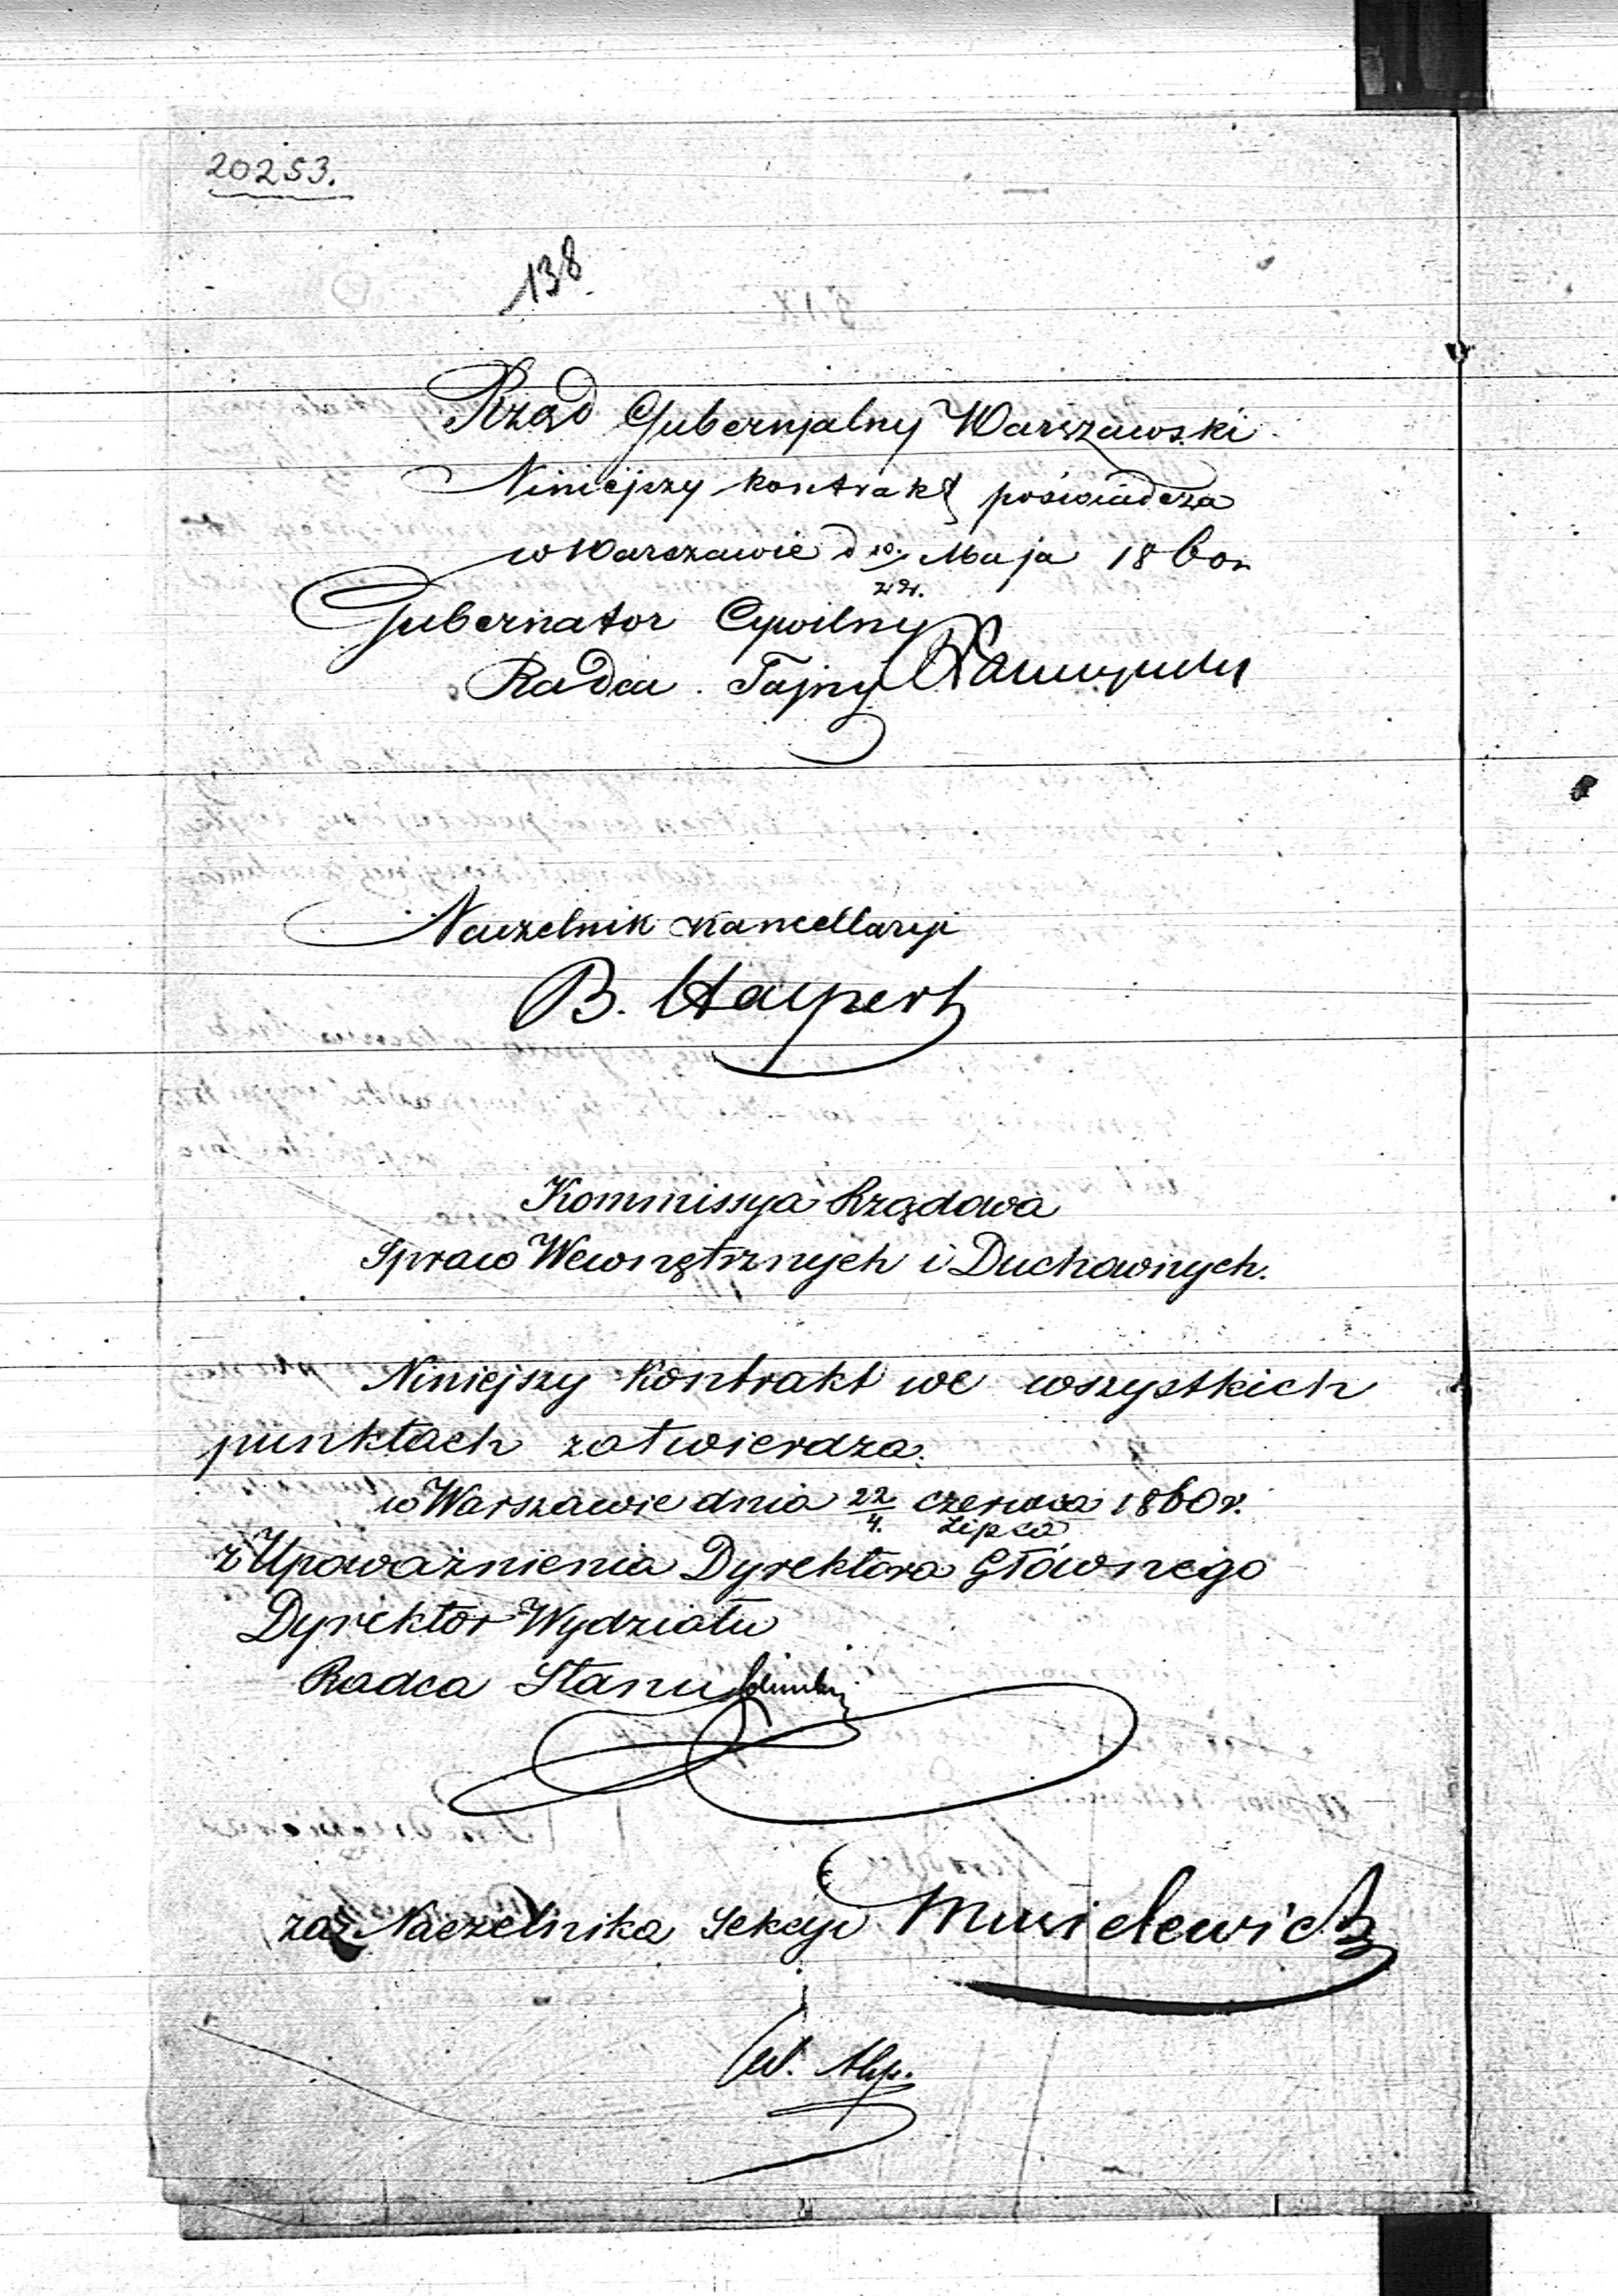 20253.
138
Rząd Gubernjalny Warszawski
Niniejszy kontrakt poświadcza
w Warszawie d 10/22. Maja 1860 r.
Gubernator Cywilny
Radca Tajny
Naczelnik Kancellaryi
B. Halpert
Kommissya Rządowa
Spraw Wewnętrznych i Duchownych.
Niniejszy Kontrakt we wszystkich
punktach zatwierdza.
w Warszawie dnia 22/4. czerwca/Lipca 1860 r.
z Upoważnienia Dyrektora Głównego
Dyrektor Wydziału
Radca Stanu
za Naczelnika Sekcyi